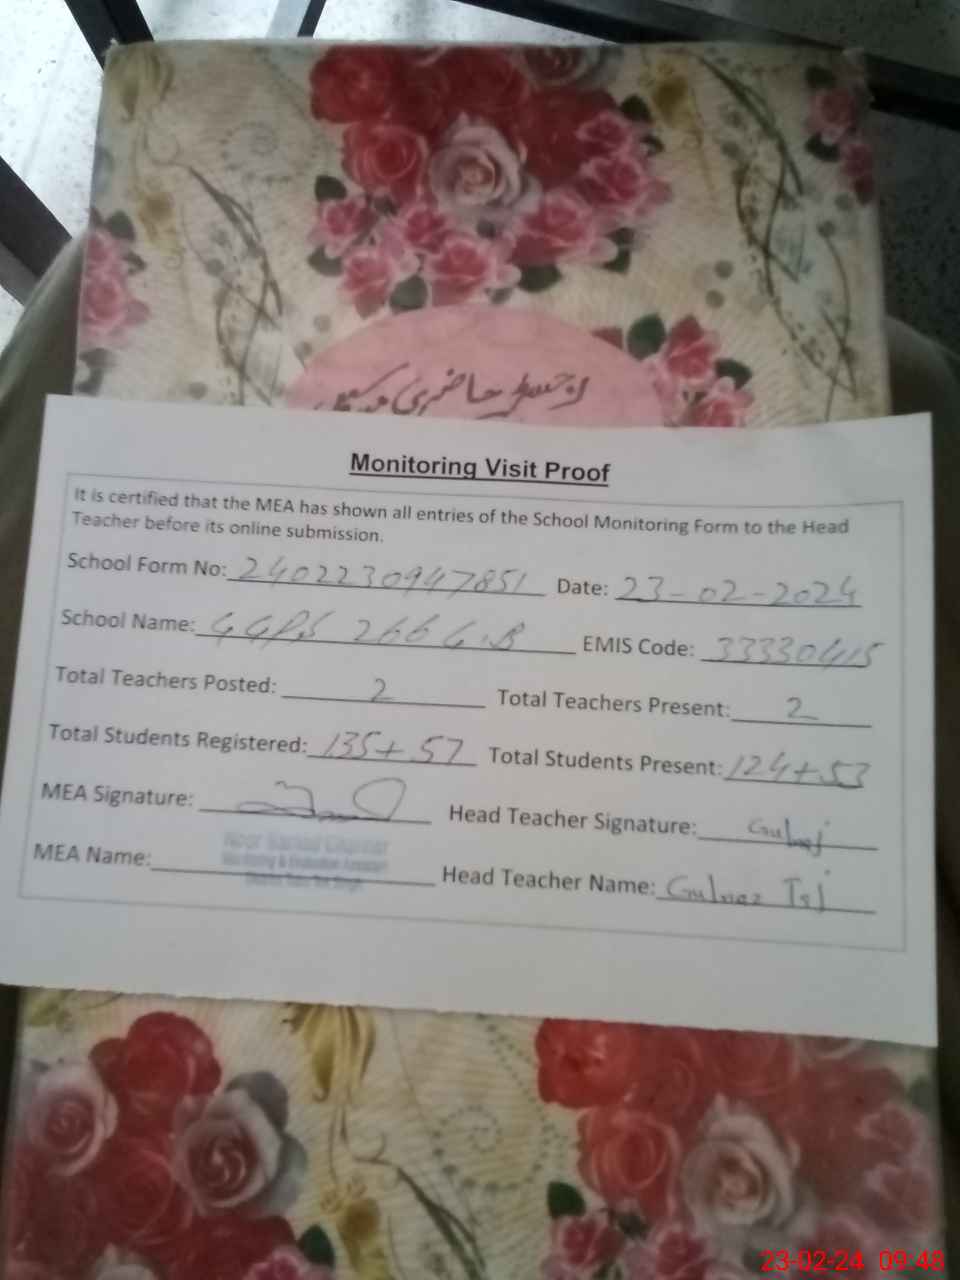 حاضری
Monitoring Visit Proof
It is certified that the MEA has shown all entries of the School Monitoring Form to the Head
Teacher before its online submission.
School Form No: 2402230947851 Date: 23-02-2024
School Name: GGPS 266 G.B EMIS Code: 33330415
Total Teachers Posted: 2 Total Teachers Present: 2
Total Students Registered: 135+57 Total Students Present: 124+53
MEA Signature: Head Teacher Signature: Gulnaz
MEA Name: Head Teacher Name: Gulnaz
Monitoring & Evaluation Assistant
23-02-24 09:48